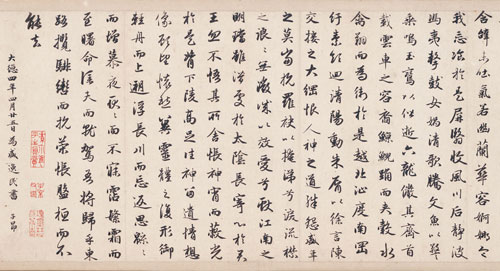 含辭未吐氣若幽蘭華容婀娜令
我忘飡於是屏翳收風川后静波
馮夷擊鼓女媧清歌騰文魚以警
乘鳴玉鸞以偕逝六龍儼其齊首
載雲車之容裔鯨鯢踴而夾轂水
禽翔而為衛於是越北沚度南岡
紆素領迴清陽動朱脣以徐言陳
交接之大綱恨人神之道殊怨盛年
之莫當抗羅袂以掩涕兮淚流襟
之浪〻無微情以效愛兮獻江南之
明璫雖潛處於太陰長寄心於君
王忽不悟其所舍悵神宵而蔽光
於是背下陵高足往神留遺情想
像顧望懷愁冀靈體之復形御
輕舟而上遡浮長川而忘返思緜〻
而增慕夜耿〻而不寐霑繁霜而
至曙命僕夫而就駕吾將歸乎東
路攬騑轡而抗策悵盤桓而不
能去
大德四年四月廿五日為盛逸民書 子昂